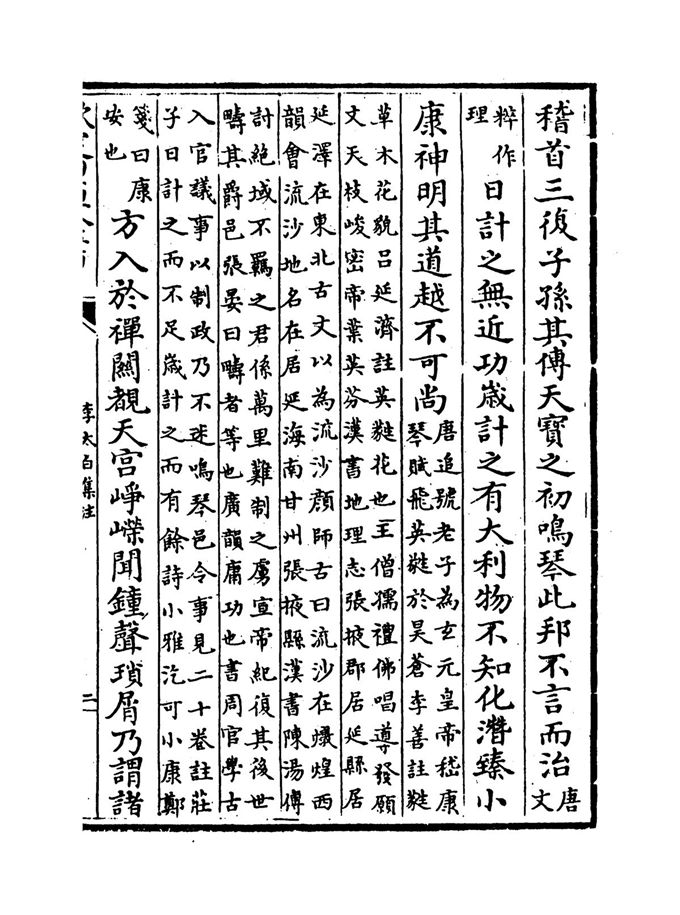 稽首三復子孫其傳天寶之初鳴琴此邦不言而治唐文
粹作理日計之無近功歲計之有大利物不知化潛臻小
康神明其道越不可尚唐追號老子為玄元皇帝嵇康
琴賦飛英蕤於昊蒼李善註蕤
草木花貌呂延濟註英蕤花也王僧孺禮佛唱導發願
文天枝峻密帝業英芬漢書地理志張掖郡居延縣居
延澤在東北古文以為流沙顔師古曰流沙在燉煌西
韻會流沙地名在居延海南甘州張掖縣漢書陳湯傳
討絕域不羈之君係萬里難制之虜宣帝紀復其後世
疇其爵邑張晏曰疇者等也廣韻庸功也書周官學古
入官議事以制政乃不迷鳴琴邑令事見二十卷註莊
子日計之而不足歲計之而有餘詩小雅汔可小康鄭
箋曰康安也方入於禪關覩天宮崢嶸聞鐘聲瑣屑乃謂諸
李太白集注